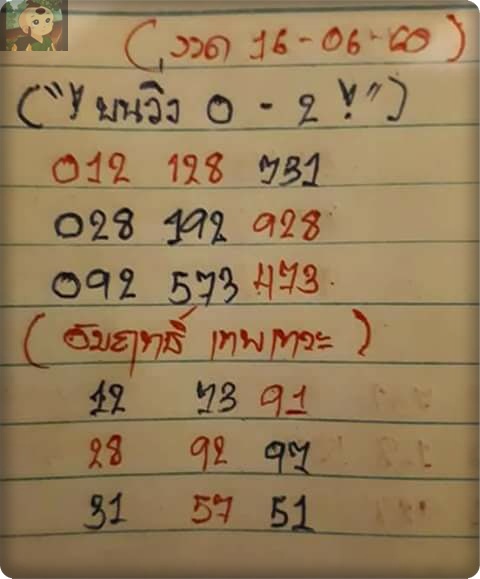 (งวด 16-06-60)
("! บนวิ่ง 0 - 2 !")
012 128 731
028 192 928
092 573 473
เทพ
12 73 91
28 92 97
31 57 51